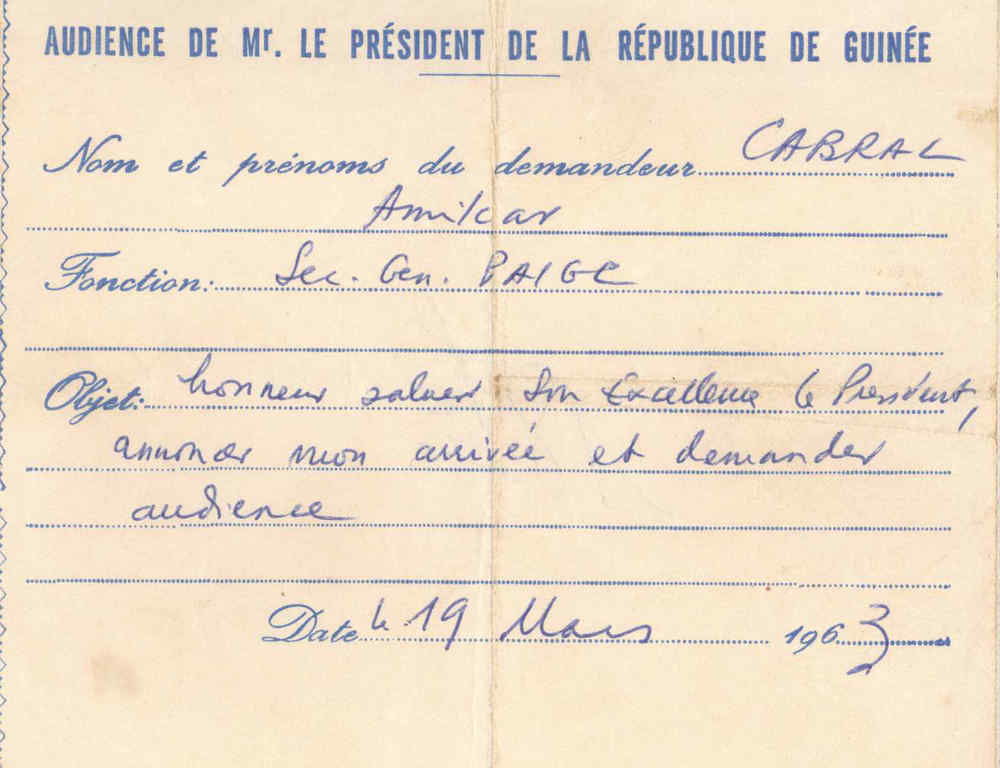 AUDIENCE DE Mr. LE PRÉSIDENT DE LA RÉPUBLIQUE DE GUINÉE
Nom et prénoms du demandeur CABRAL
Amilcar
Fonction: Sec. Gen. PAIGC
Objet: honneur saluer Son Excellence le Président,
annoncer mon arrivée et demander
audience
Date le 19 Mars 1963